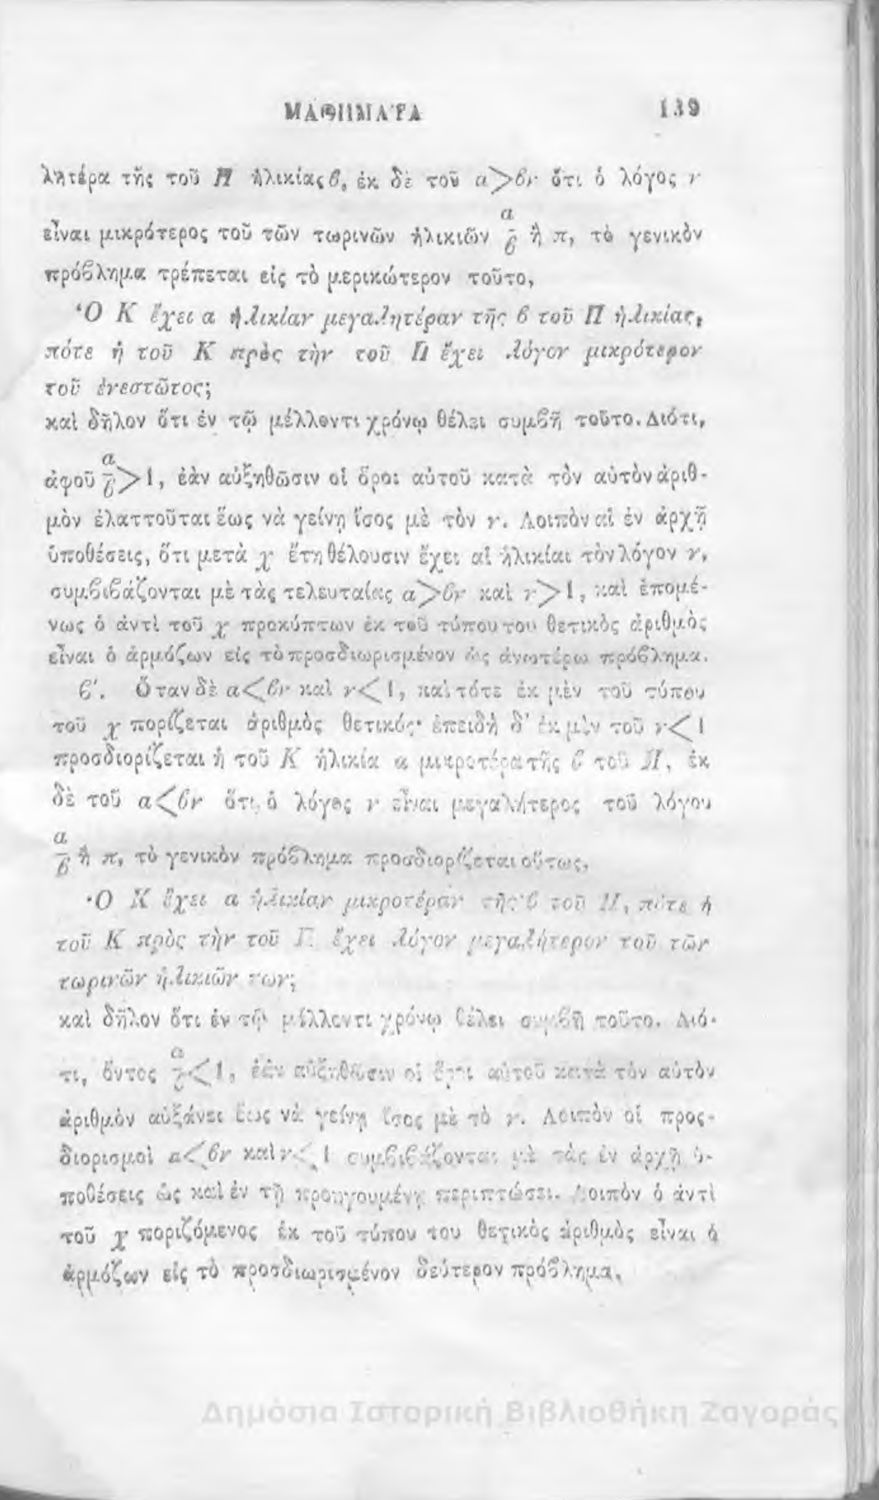 ΜΑΘΗΜΑΤΑ 139
λητέρα τῆς τοῦ Π ἡλικίας β, ἐκ δὲ τοῦ α>βν ὅτι ὁ λόγος ν
εἶναι μικρότερος τοῦ τῶν τωρινῶν ἡλικιῶν α/β ἢ π, τὸ γενικὸν
πρόβλημα τρέπεται εἰς τὸ μερικώτερον τοῦτο,
Ὁ Κ ἔχει α ἡλικίαν μεγαλητέραν τῆς β τοῦ Π ἡλικίας,
πότε ἡ τοῦ Κ πρὸς τὴν τοῦ Π ἔχει λόγον μικρότερον
τοῦ ἐνεστῶτος;
καὶ δῆλον ὅτι ἐν τῷ μέλλοντι χρόνῳ θέλει συμβῆ τοῦτο. Διότι,
ἀφοῦ α/β>1, ἐὰν αὐξηθῶσιν οἱ ὅροι αὐτοῦ κατὰ τὸν αὐτὸν ἀριθ-
μὸν ἐλαττοῦται ἕως νὰ γείνῃ ἴσος μὲ τὸν ν. Λοιπὸν αἱ ἐν ἀρχῇ
ὑποθέσεις, ὅτι μετὰ χ ἔτη θέλουσιν ἔχει αἱ ἡλικίαι τὸν λόγον ν,
συμβιβάζονται μὲ τὰς τελευταίας α>βν καὶ ν>1, καὶ ἑπομέ-
νως ὁ ἀντὶ τοῦ χ προκύπτων ἐκ τοῦ τύπου του θετικὸς ἀριθμὸς
εἶναι ὁ ἁρμόζων εἰς τὸ προσδιωρισμένον ὡς ἀνωτέρω πρόβλημα.
β'. Ὅταν δὲ α<βν καὶ ν<1, καὶ τότε ἐκ μὲν τοῦ τύπου
τοῦ χ πορίζεται ἀριθμὸς θετικός· ἐπειδὴ δ' ἐκ μὲν τοῦ ν<1
προσδιορίζεται ἡ τοῦ Κ ἡλικία α μικροτέρα τῆς β τοῦ Π, ἐκ
δὲ τοῦ α<βν ὅτι ὁ λόγος ν εἶναι μεγαλήτερος τοῦ λόγου
α/β ἢ π, τὸ γενικὸν πρόβλημα προσδιορίζεται οὕτως,
Ὁ Κ ἔχει α ἡλικίαν μικροτέραν τῆς β τοῦ Π, πότε ἡ
τοῦ Κ πρὸς τὴν τοῦ Π ἔχει λόγον μεγαλήτερον τοῦ τῶν
τωρινῶν ἡλικιῶν των;
καὶ δῆλον ὅτι ἐν τῷ μέλλοντι χρόνῳ θέλει συμβῆ τοῦτο. Διό-
τι, ὄντος α/β<1, ἐὰν αὐξηθῶσιν οἱ ὅροι αὐτοῦ κατὰ τὸν αὐτὸν
ἀριθμὸν αὐξάνει ἕως νὰ γείνῃ ἴσος μὲ τὸ ν. Λοιπὸν οἱ προς-
διορισμοὶ α<βν καὶ ν<1 συμβιβάζονται μὲ τὰς ἐν ἀρχῇ ὑ-
ποθέσεις ὡς καὶ ἐν τῇ προηγουμένῃ περιπτώσει. Λοιπὸν ὁ ἀντὶ
τοῦ χ ποριζόμενος ἐκ τοῦ τύπου του θετικὸς ἀριθμὸς εἶναι ὁ
ἁρμόζων εἰς τὸ προσδιωρισμένον δεύτερον πρόβλημα.
Δημόσια Ιστορική Βιβλιοθήκη Ζαγοράς